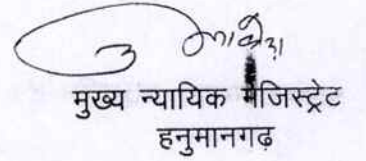 मुख्य न्यायिक मजिस्ट्रेट
हनुमानगढ़